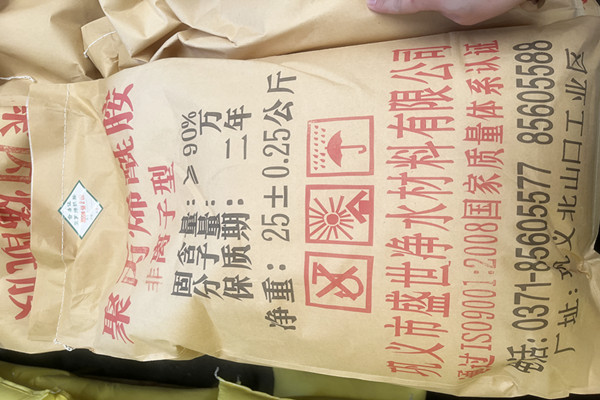 聚丙烯酰胺
非离子型
固含量：≥90%
分子量： 万
保质期：二年
净重：25±0.25公斤
巩义市盛世净水材料有限公司
通过ISO9001:2008国家质量体系认证
电话：0371-85605577 85605588
厂址：巩义北山口工业区